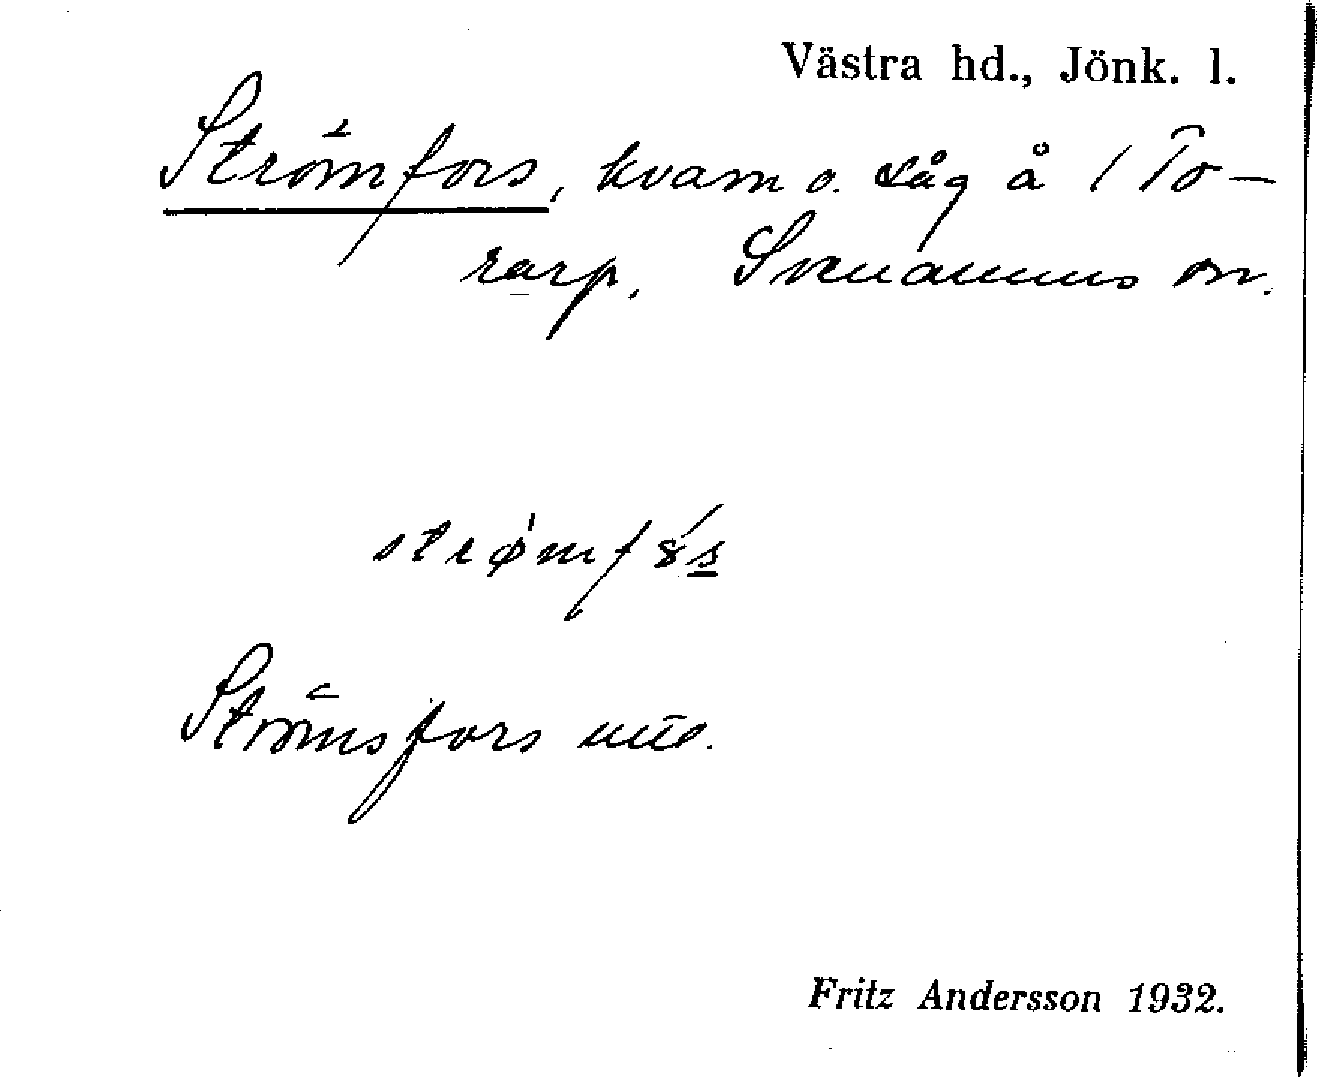 Västra hd., Jönk. l.
Strömfors, kvarn o. såg å 1 To-
rarp. Svenarums sn.
strømf
Strömsfors
Fritz Andersson 1932.